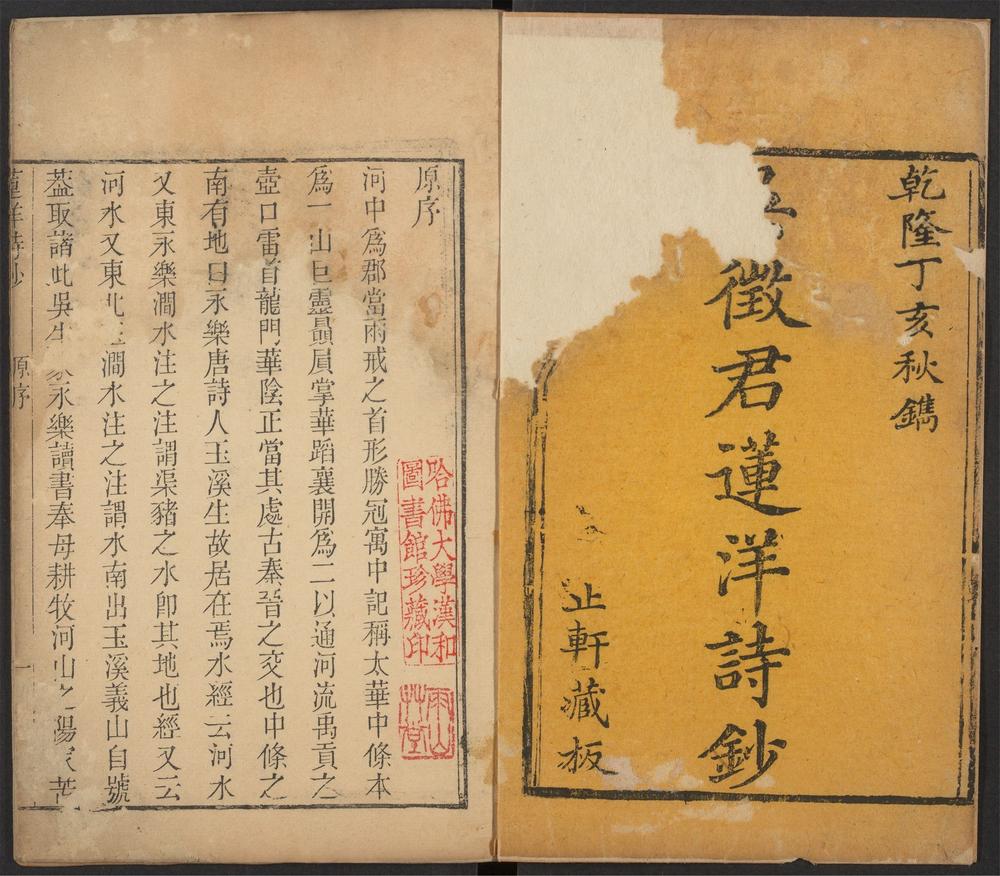 乾隆丁亥秋鐫
徵君蓮洋詩鈔
止軒藏板
原序
河中爲郡當兩戒之首形勝冠寓中記稱太華中條本
爲一山巨靈贔屓掌華蹈襄開爲二以通河流禹貢之
壺口雷首龍門華陰正當其處古秦晉之交也中條之
南有地曰永樂唐詩人玉溪生故居在焉水經云河水
又東永樂澗水注之注謂渠豬之水卽其地也經又云
河水又東北玉澗水注之注謂水南出玉溪義山自號
葢取諸此吳生永樂讀書奉母耕牧河山之陽家苦
蓮洋詩鈔
原序
一
哈佛大學漢和
圖書館珍藏印
雨山
草堂